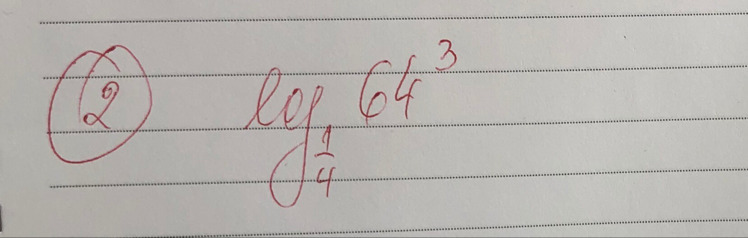 ② log_{1/4} 64³